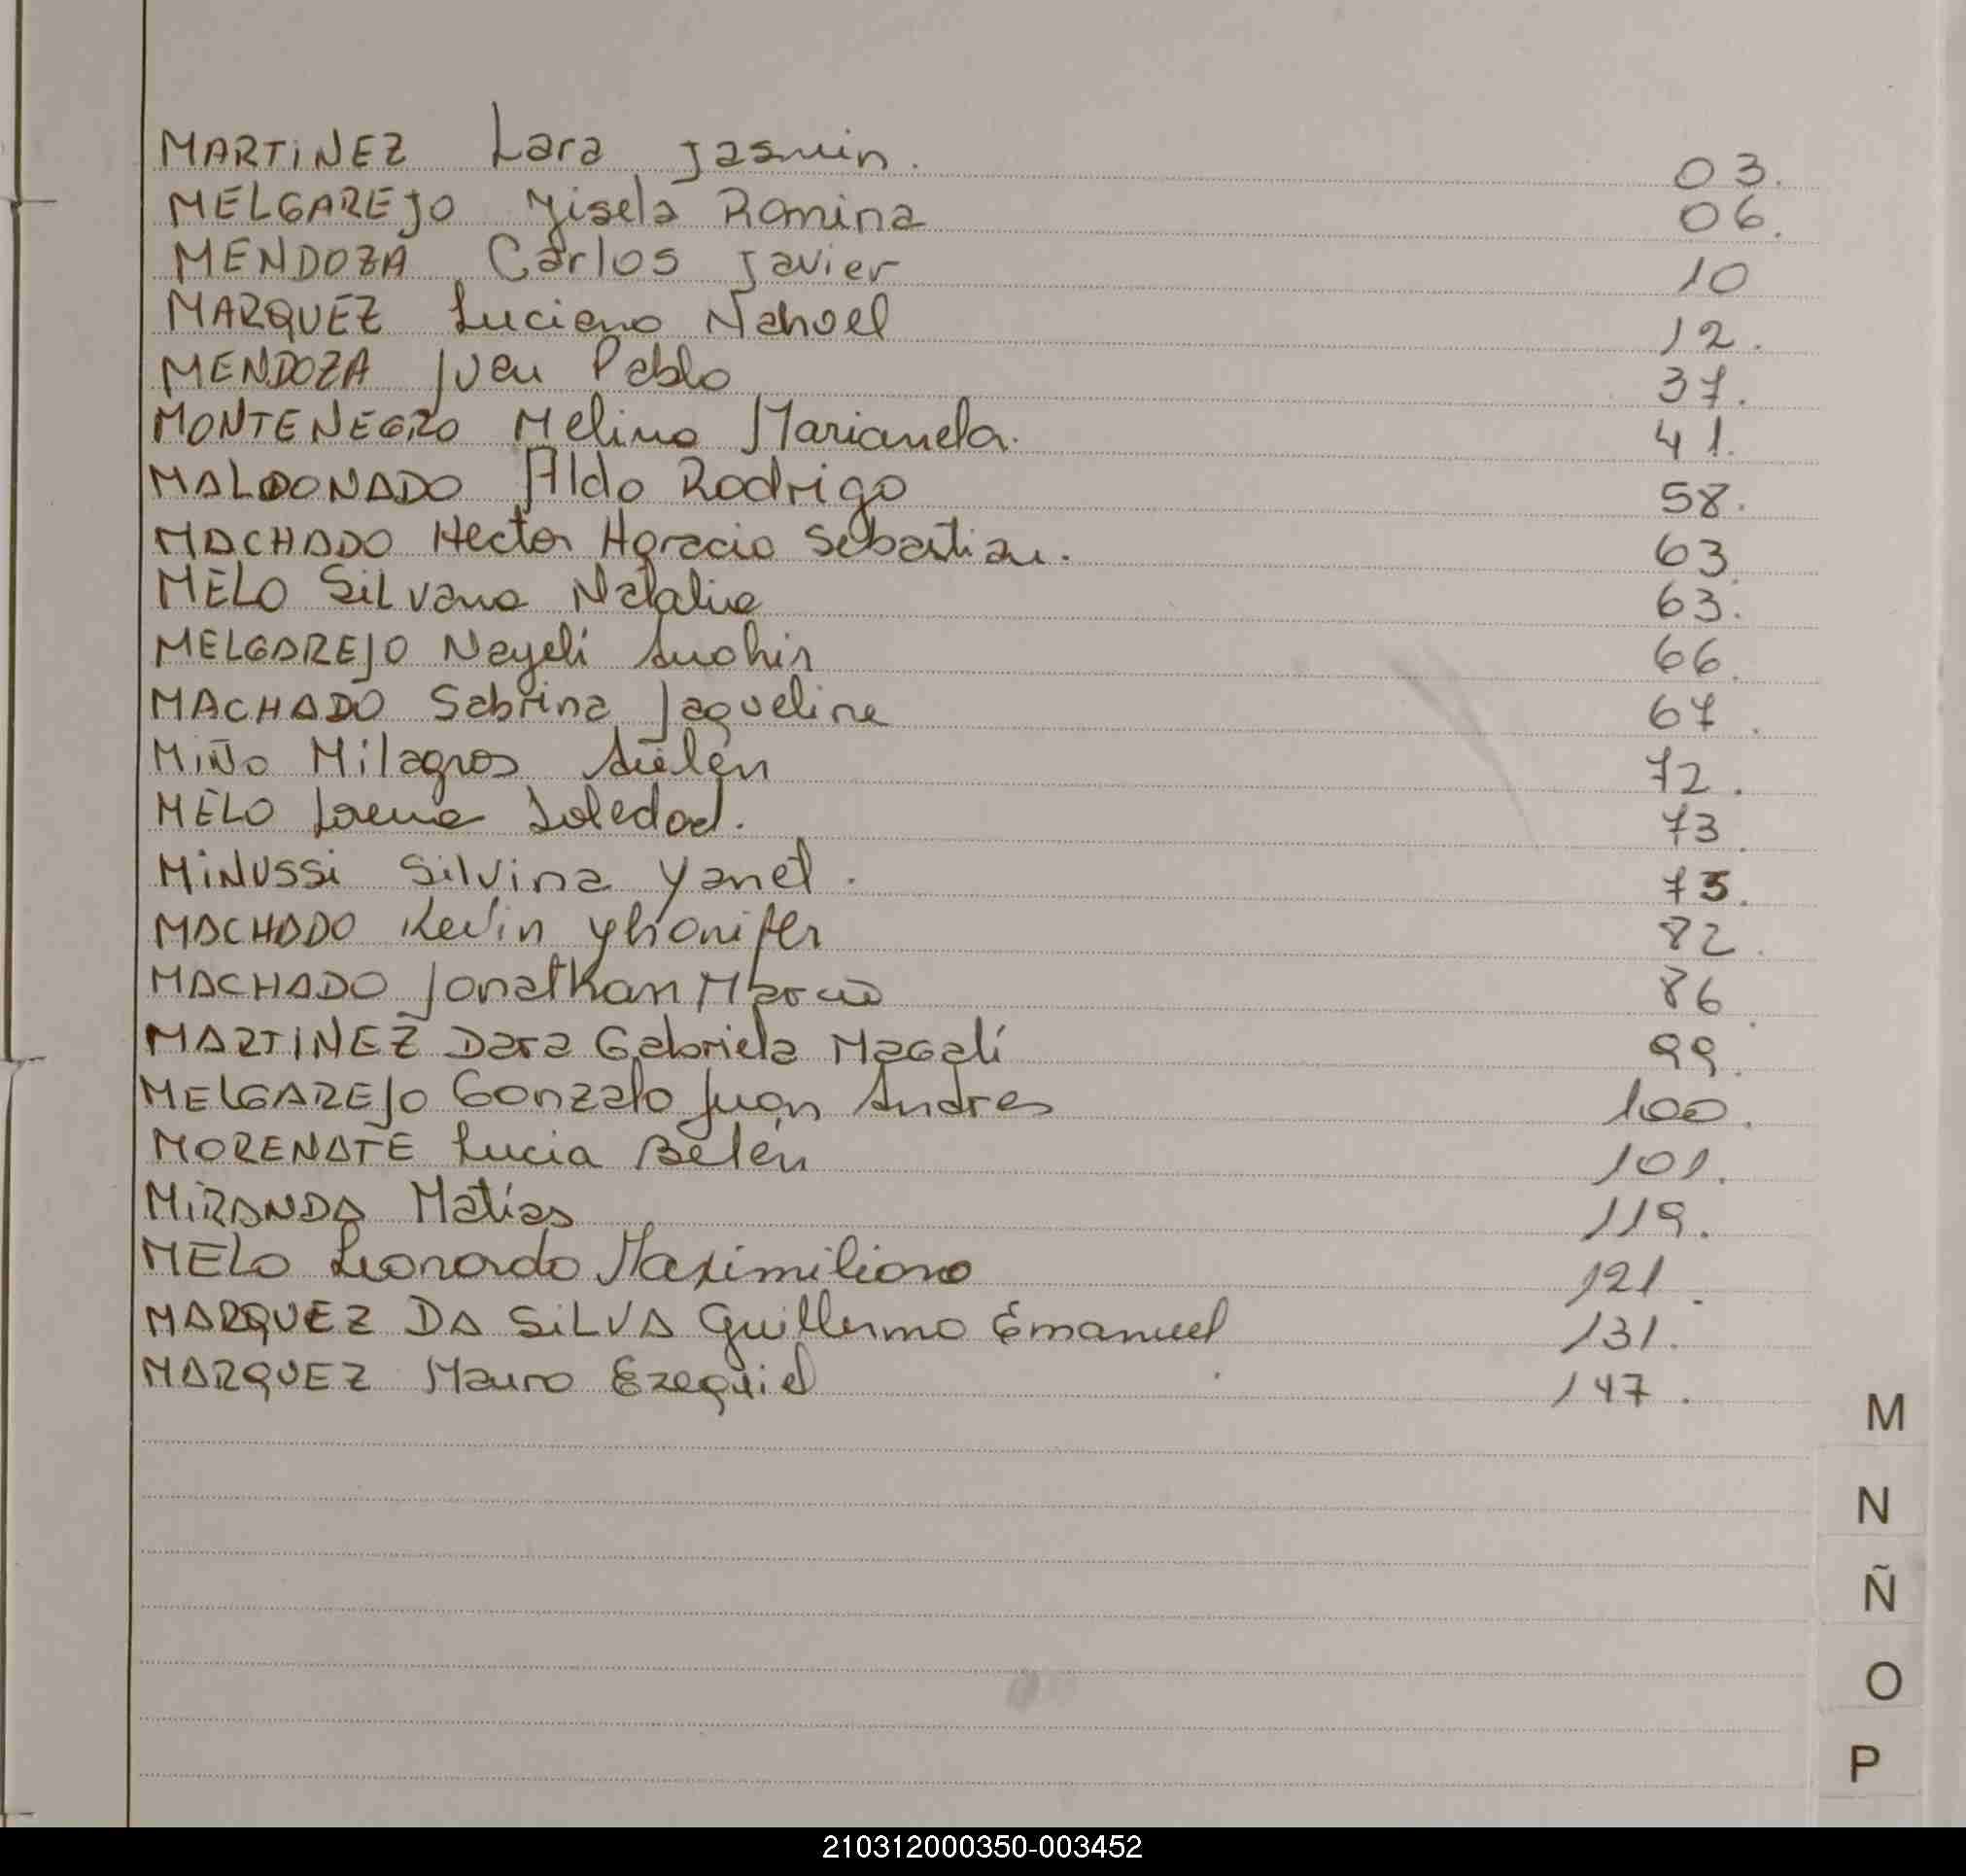 MARTINEZ Lara Jasmin. 03.
MELGAREJO Yisela Romina 06.
MENDOZA Carlos Javier 10
MARQUEZ Luciano Nahuel 12.
MENDOZA Juan Pablo 37.
MONTENEGRO Melina Marianela. 41.
MALDONADO Aldo Rodrigo 58.
MACHADO Hector Horacio Sebastian. 63.
MELO Silvana Natalia 63.
MELGAREJO Nayeli Anahir 66.
MACHADO Sabrina Jaqueline 67.
MIÑO Milagros Ailén 72.
MELO Lorena Soledad. 73.
MINUSSI Silvina Yanet. 75.
MACHADO Kevin Yhonifer 82.
MACHADO Jonathan Marcio 86.
MARTINEZ Dara Gabriela Magalí 99.
MELGAREJO Gonzalo Juan Andres 100.
MORENATE Lucia Belén 101.
MIRANDA Matías 119.
MELO Leonardo Maximiliano 121.
MARQUEZ DA SILVA Guillermo Emanuel 131.
MARQUEZ Mauro Ezequiel 147.
M
N
Ñ
O
P
210312000350-003452